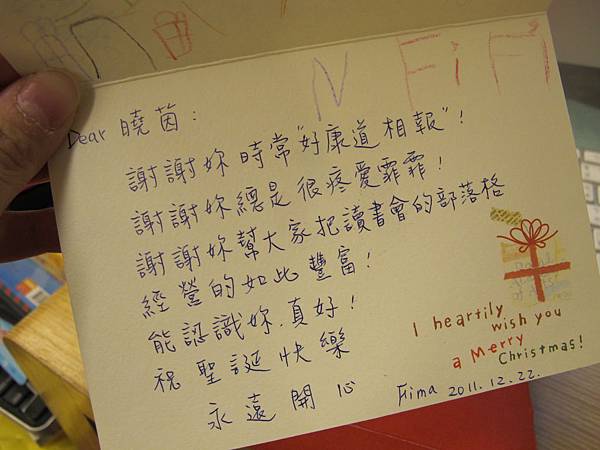 N FiFi
Dear 曉茵:
謝謝妳時常"好康道相報"!
謝謝妳總是很疼愛霏霏!
謝謝妳幫大家把讀書會的部落格
經營的如此豐富!
能認識妳.真好!
祝聖誕快樂
永遠開心
I heartily
wish you
a Merry
Christmas!
Fima 2011.12.22.